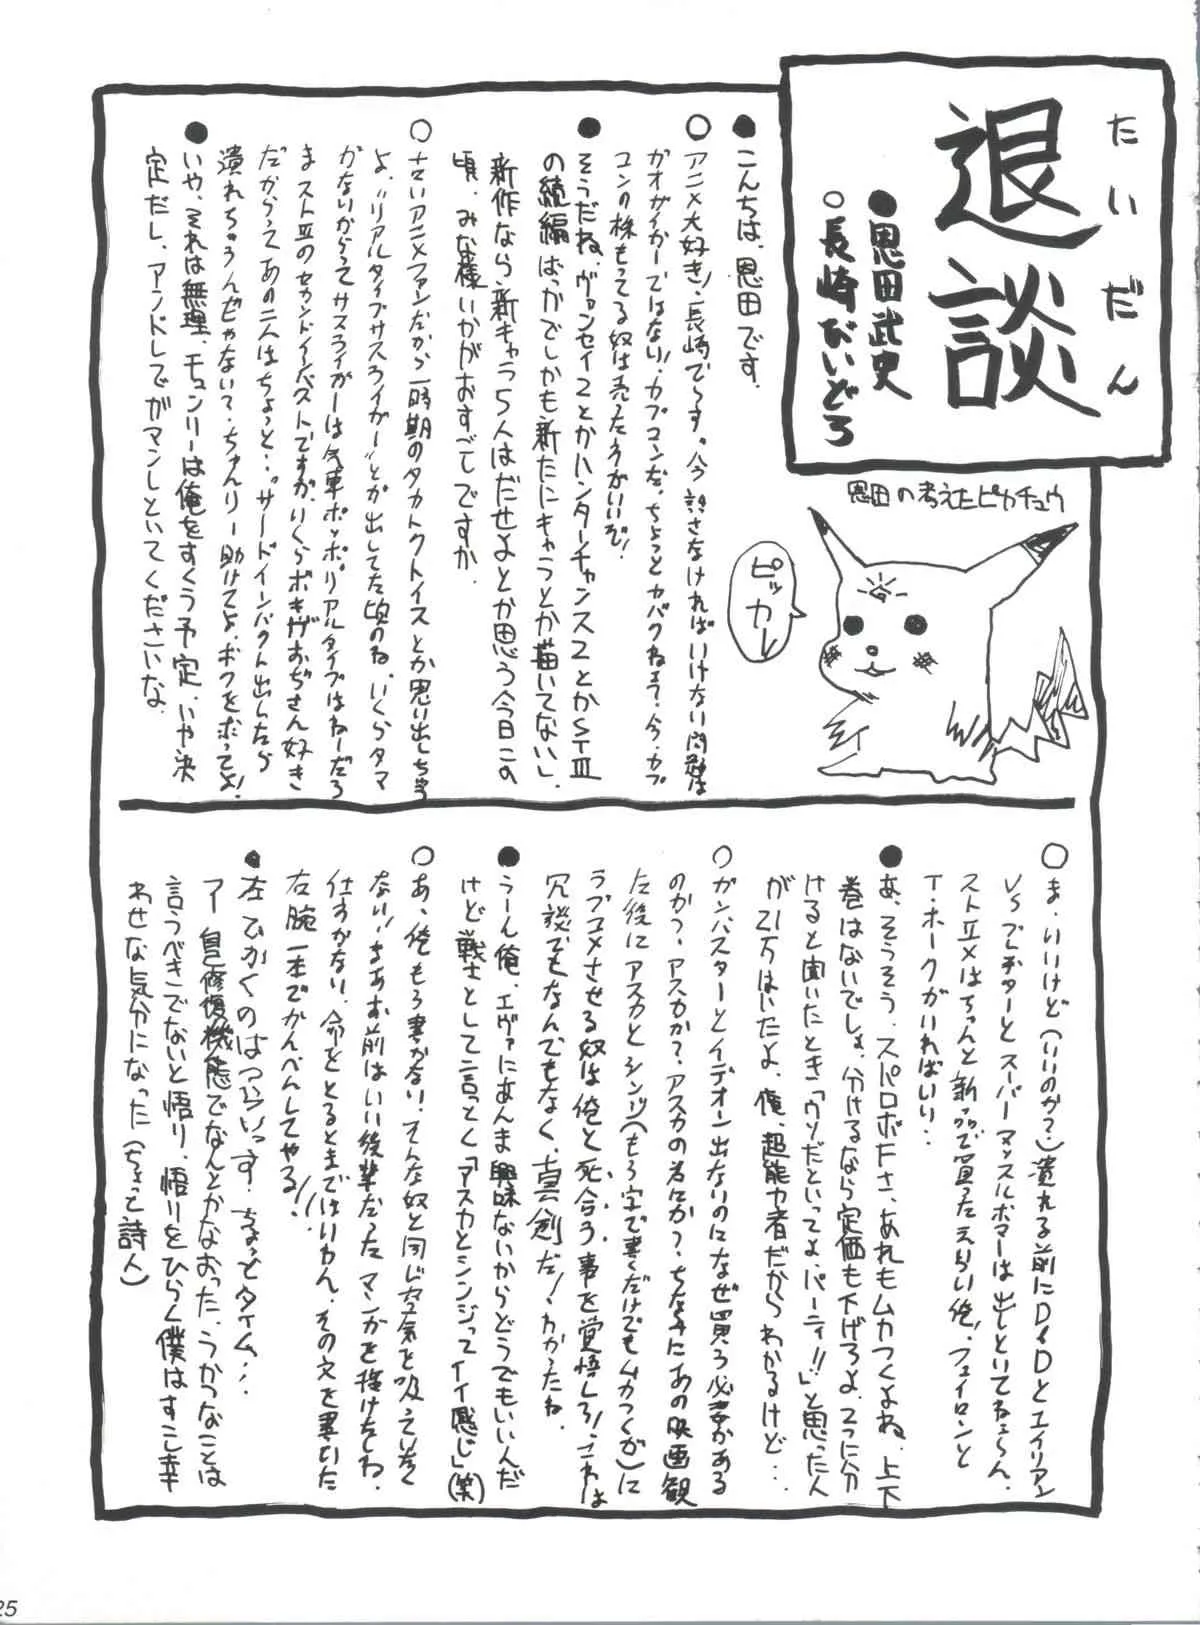 たいだん
退談
●恩田武史
○長崎びいどろ
恩田の考えたピカチュウ
ピッカー
●こんちは、恩田です。
○アニメ大好き!長崎でーす。今話さなければいけない問題は
ガオガイガーではない!カプコンだ。ちょっとカバクねぇ?今、カプ
コンの株もってる奴は売った方がいいぞ!
●そうだね。ヴァンセイ2とかハンターチャンス2とかSTⅢ
の続編ばっかでしかも新たにキャラとか描いてない。
新作なら新キャラ5人はだせよとか思う今日この
頃、みな様いかがおすごしですか。
○古いアニメファンだから一時期のタカトクトイスとか思い出しちゃう
よ。"リアルタイプサスライガー"とか出してた頃のね。いくらタマ
がないからってサスライガーは汽車ポッポ。リアルタイプはねーだろ
まストⅢのセカンドインパクトですが、いくらボキがおぢさん好き
だからってあの二人はちょっと…。"サードインパクト出したら
潰れちゃうんじゃないで・ちゅんリー助けてよ。ボクをボってよ!
●いや、それは無理。チュンリーは俺をすくう予定、いや決
定だし。アンドレでガマンしといてくださいな。
○ま、いいけど(いいのか?)潰れる前にD&Dとエイリアン
VSプレデターとスーパーマッスルボマーは出しといてねぇーん。
ストⅡXはちゃんと新品で買ったえらい俺!フェイロンと
T・ホークがいればいい…
●あ、そうそう、スパロボFさ、あれもムカつくよね。上下
巻はないでしょ。分けるなら定価も下げろよ。2つに分
けると聞いたとき「ウソだといってよ、バーディ!!」と思った人
が21万はいたよ。俺、超能力者だからわかるけど…
○ガンバスターとイデオン出ないのになぜ買う必要がある
のかっ。アスカか?アスカの為にか?ちなみにあの映画観
た後にアスカとシンジ(もう字で書くだけでもムカつくが)に
ラブコメさせる奴は俺と死合う事を覚悟しろ!これは
冗談でもなんでもなく、真剣だ!わかったね。
●うーん俺、エヴァにあんま興味ないからどうでもいいんだ
けど戦士として言っとく「アスカとシンジってイイ感じ」(笑)
○あ、俺もう書かない。そんな奴と同じ空気を吸っていたく
ない!まあお前はいい後輩だったマンガを抜けたしね
仕すかない、命をとるとまではいわん。その文を書いた
右腕一本でかんべんしてやる!!
●左でかくのはつらいっす。ちょっとタイム…
アー自己修復機能でなんとかなおった。うかつなことは
言うべきでないと悟り、悟りをひらく僕はすこし幸
わせな気分になった(ちょっと詩人)
25